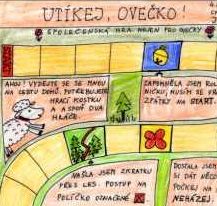 UTÍKEJ, OVEČKO!
SPOLEČENSKÁ HRA NEJEN PRO OVEČKY
AHOJ! VYDEJTE SE SE MNOU
NA CESTU DOMŮ. POTŘEBUJETE
HRACÍ KOSTKU
A ASPOŇ DVA
HRÁČE.
ZAPOMNĚLA JSEM
NIČKU, MUSÍM SE
ZPÁTKY NA START.
NAŠLA JSEM ZKRATKU
PŘES LES. POSTUP NA
POLÍČKO OZNAČENÉ
DOSTALA JSEM
SI DÁT
POČKEJ NA
NEHÁZEJ.